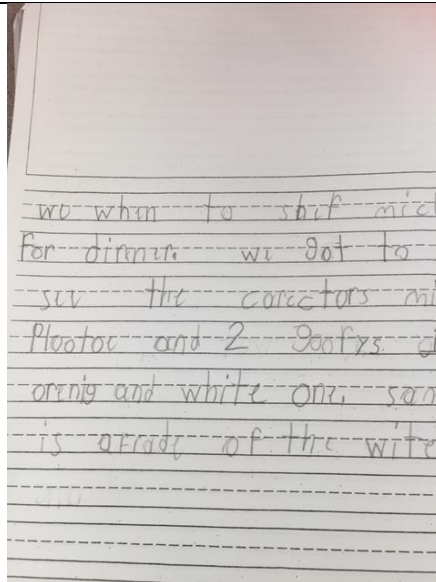 we when to shef mic
For dinner. we got to
see the carectors mi
Plootoe and 2 goofys a
orenig and white one. san
is afrade of the wite